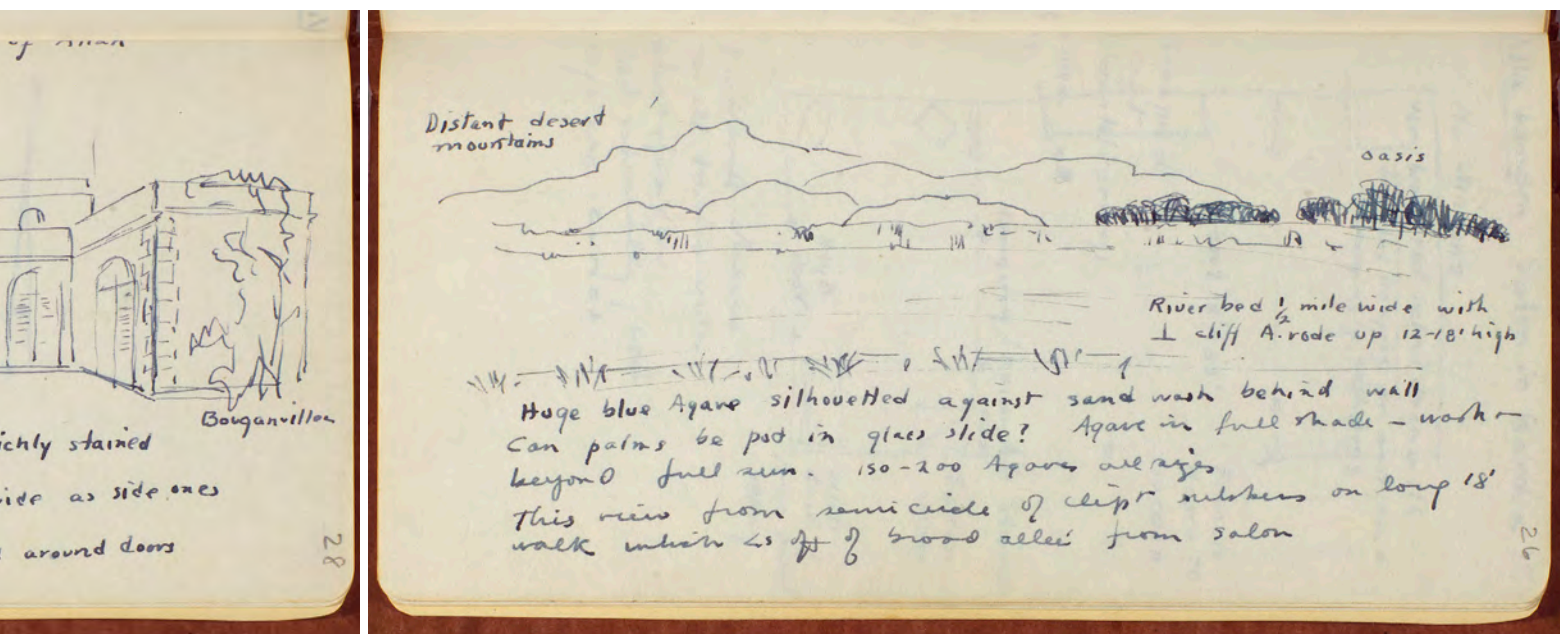 of Allah
Bouganvillea
ichly stained
ide as side ones
around doors
28
Distant desert
mountains
oasis
River bed 1/2 mile wide with
⊥ cliff A. rode up 12-18' high
Huge blue Agave silhouetted against sand wash behind wall
Can palms be put in glass slide? Agave in full shade - wash
beyond full sun. 150-200 Agaves all sizes
This view from semicircle of clipt on long 18'
walk which ∠s off of broad alleé from salon
26